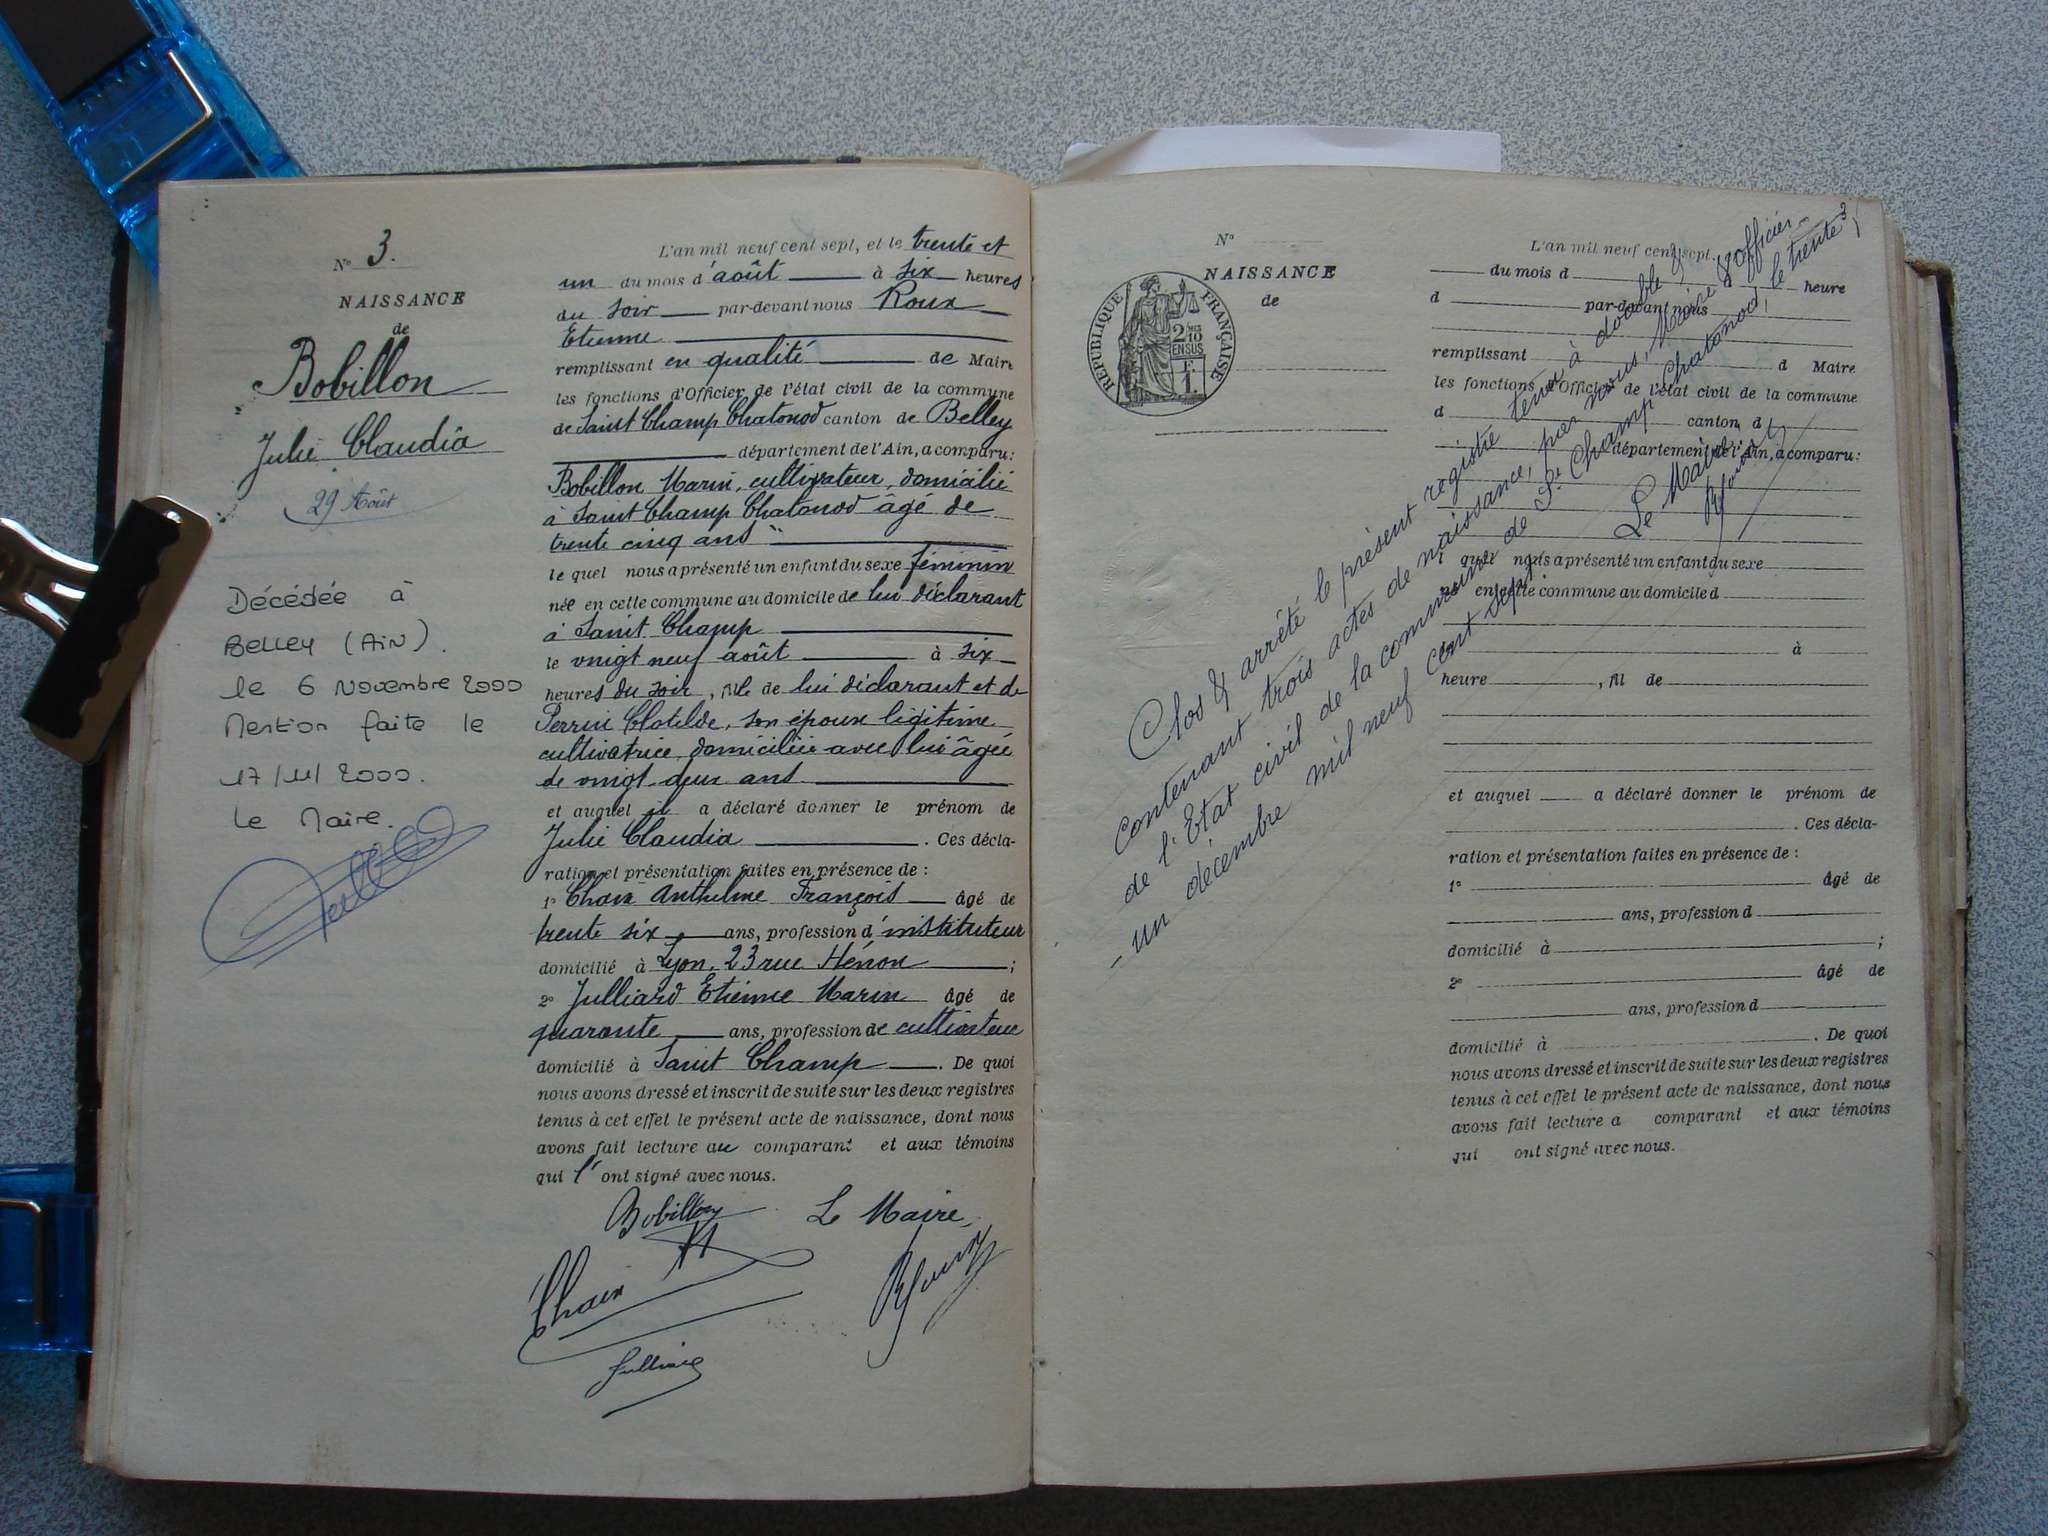 N° 3.
NAISSANCE
de
Bobillon
Julie Claudia
29 Août
Décédée à
Belley (Ain).
le 6 Novembre 2000
Mention faite le
17/11/2000.
Le Maire.
L'an mil neuf cent sept, et le trente et
un du mois d'août à six heures
du soir par-devant nous Roux
Etienne
remplissant en qualité de Maire
les fonctions d'Officier de l'état civil de la commune
de Saint Champ Chatonod canton de Belley
département de l'Ain, a comparu:
Bobillon Marin, cultivateur, domicilié
à Saint Champ Chatonod âgé de
trente cinq ans
le quel nous a présenté un enfant du sexe féminin
née en cette commune au domicile de lui déclarant
à Saint Champ
le vingt neuf août à six
heures du soir, fille de lui déclarant et de
Perrin Clotilde, son épouse légitime
cultivatrice, domiciliée avec lui âgée
de vingt deux ans
et auquel il a déclaré donner le prénom de
Julie Claudia . Ces décla-
ration et présentation faites en présence de :
1° Chaix Anthelme François âgé de
trente six ans, profession d'instituteur
domicilié à Lyon, 23 rue Hénon ;
2° Julliard Etienne Marin âgé de
quarante ans, profession de cultivateur
domicilié à Saint Champ . De quoi
nous avons dressé et inscrit de suite sur les deux registres
tenus à cet effet le présent acte de naissance, dont nous
avons fait lecture au comparant et aux témoins
qui l'ont signé avec nous.
Bobillon Le Maire,
Chaix
N°
NAISSANCE
de
RÉPUBLIQUE FRANÇAISE
2/10
EN SUS
1 F.
L'an mil neuf cent sept,
du mois d à heure
d par-devant nous
remplissant d Maire
les fonctions d'Officier de l'état civil de la commune
d canton d
département de l'Ain, a comparu:
quel nous a présenté un enfant du sexe
n en cette commune au domicile d
le à
heure , fil de
et auquel a déclaré donner le prénom de
. Ces décla-
ration et présentation faites en présence de :
1° âgé de
ans, profession d
domicilié à ;
2° âgé de
ans, profession d
domicilié à . De quoi
nous avons dressé et inscrit de suite sur les deux registres
tenus à cet effet le présent acte de naissance, dont nous
avons fait lecture a comparant et aux témoins
qui ont signé avec nous.
Clos & arrêté le présent registre tenu à double &
contenant trois actes de naissance, par nous, Maire & officier
de l'Etat civil de la commune de St Champ Chatonod, le trente
-un décembre mil neuf cent sept.
Le Maire